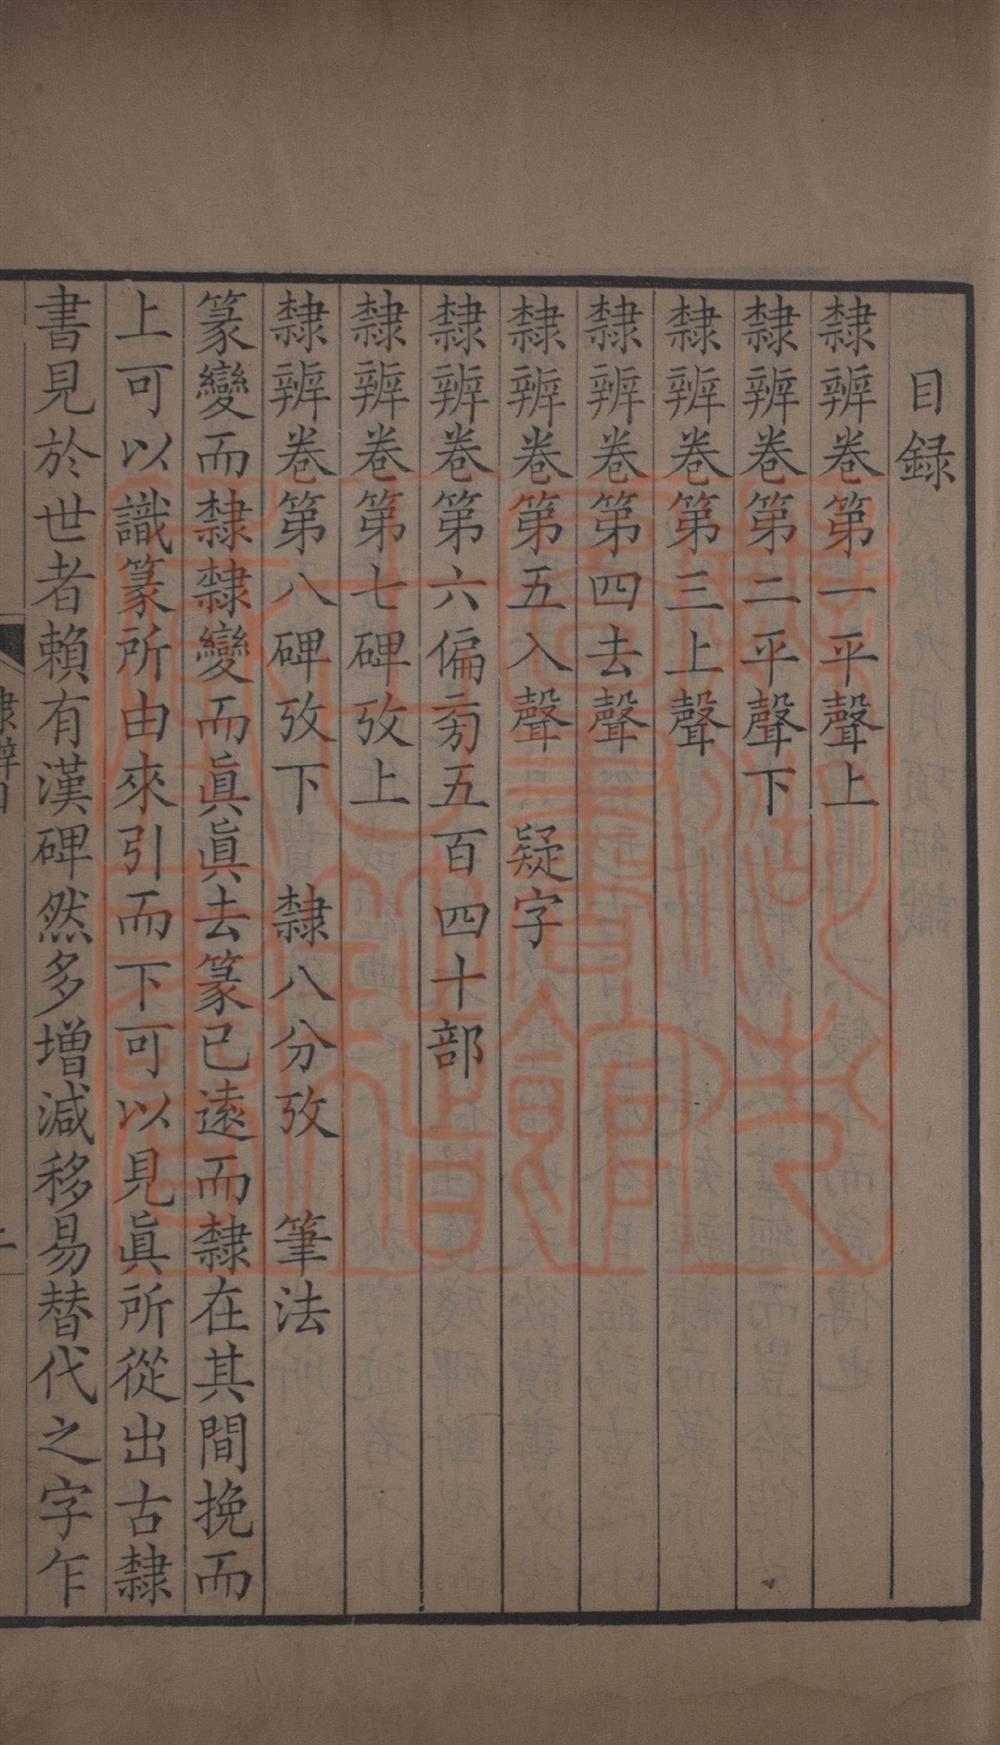 目録
隸辨卷第一平聲上
隸辨卷第二平聲下
隸辨卷第三上聲
隸辨卷第四去聲
隸辨卷第五入聲　疑字
隸辨卷第六偏旁五百四十部
隸辨卷第七碑攷上
隸辨卷第八碑攷下　隸八分攷　筆法
篆變而隸隸變而眞眞去篆已遠而隸在其間挽而
上可以識篆所由來引而下可以見眞所從出古隸
書見於世者賴有漢碑然多增減移易替代之字乍